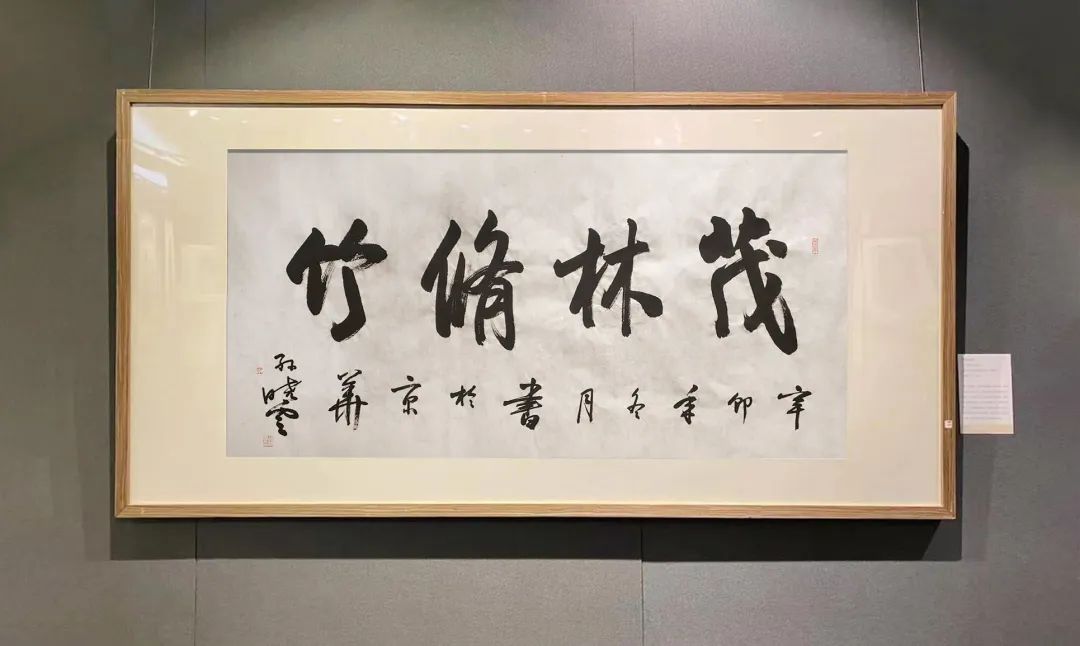 茂林脩竹
辛卯年冬月書於京華
孫曉雲